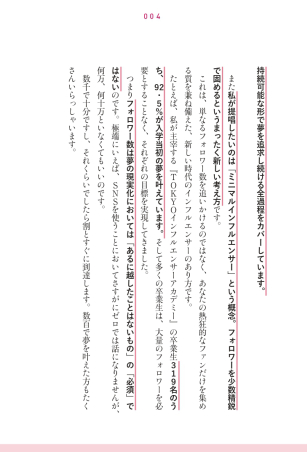 004
持続可能な形で夢を追求し続ける全過程をカバーしています。
また私が提唱したいのは「ミニマルインフルエンサー」という概念。フォロワーを少数精鋭
で固めるというまったく新しい考え方です。
これは、単なるフォロワー数を追いかけるのではなく、あなたの熱狂的なファンだけを集め
る質を兼ね備えた、新しい時代のインフルエンサーのあり方です。
たとえば、私が主宰する『TOKYOインフルエンサーアカデミー』の卒業生319名のう
ち、92・5%が入学当初の夢を叶えています。そして多くの卒業生は、大量のフォロワーを必
要とすることなく、それぞれの目標を実現してきました。
つまりフォロワー数は夢の現実化においては「あるに越したことはないもの」の「必須」で
はないのです。極端にいえば、SNSを使うことにおいてさすがにゼロでは話になりませんが、
何万、何十万といなくてもいいのです。
数千で十分ですし、それくらいでしたら割とすぐに到達します。数百で夢を叶えた方もたく
さんいらっしゃいます。